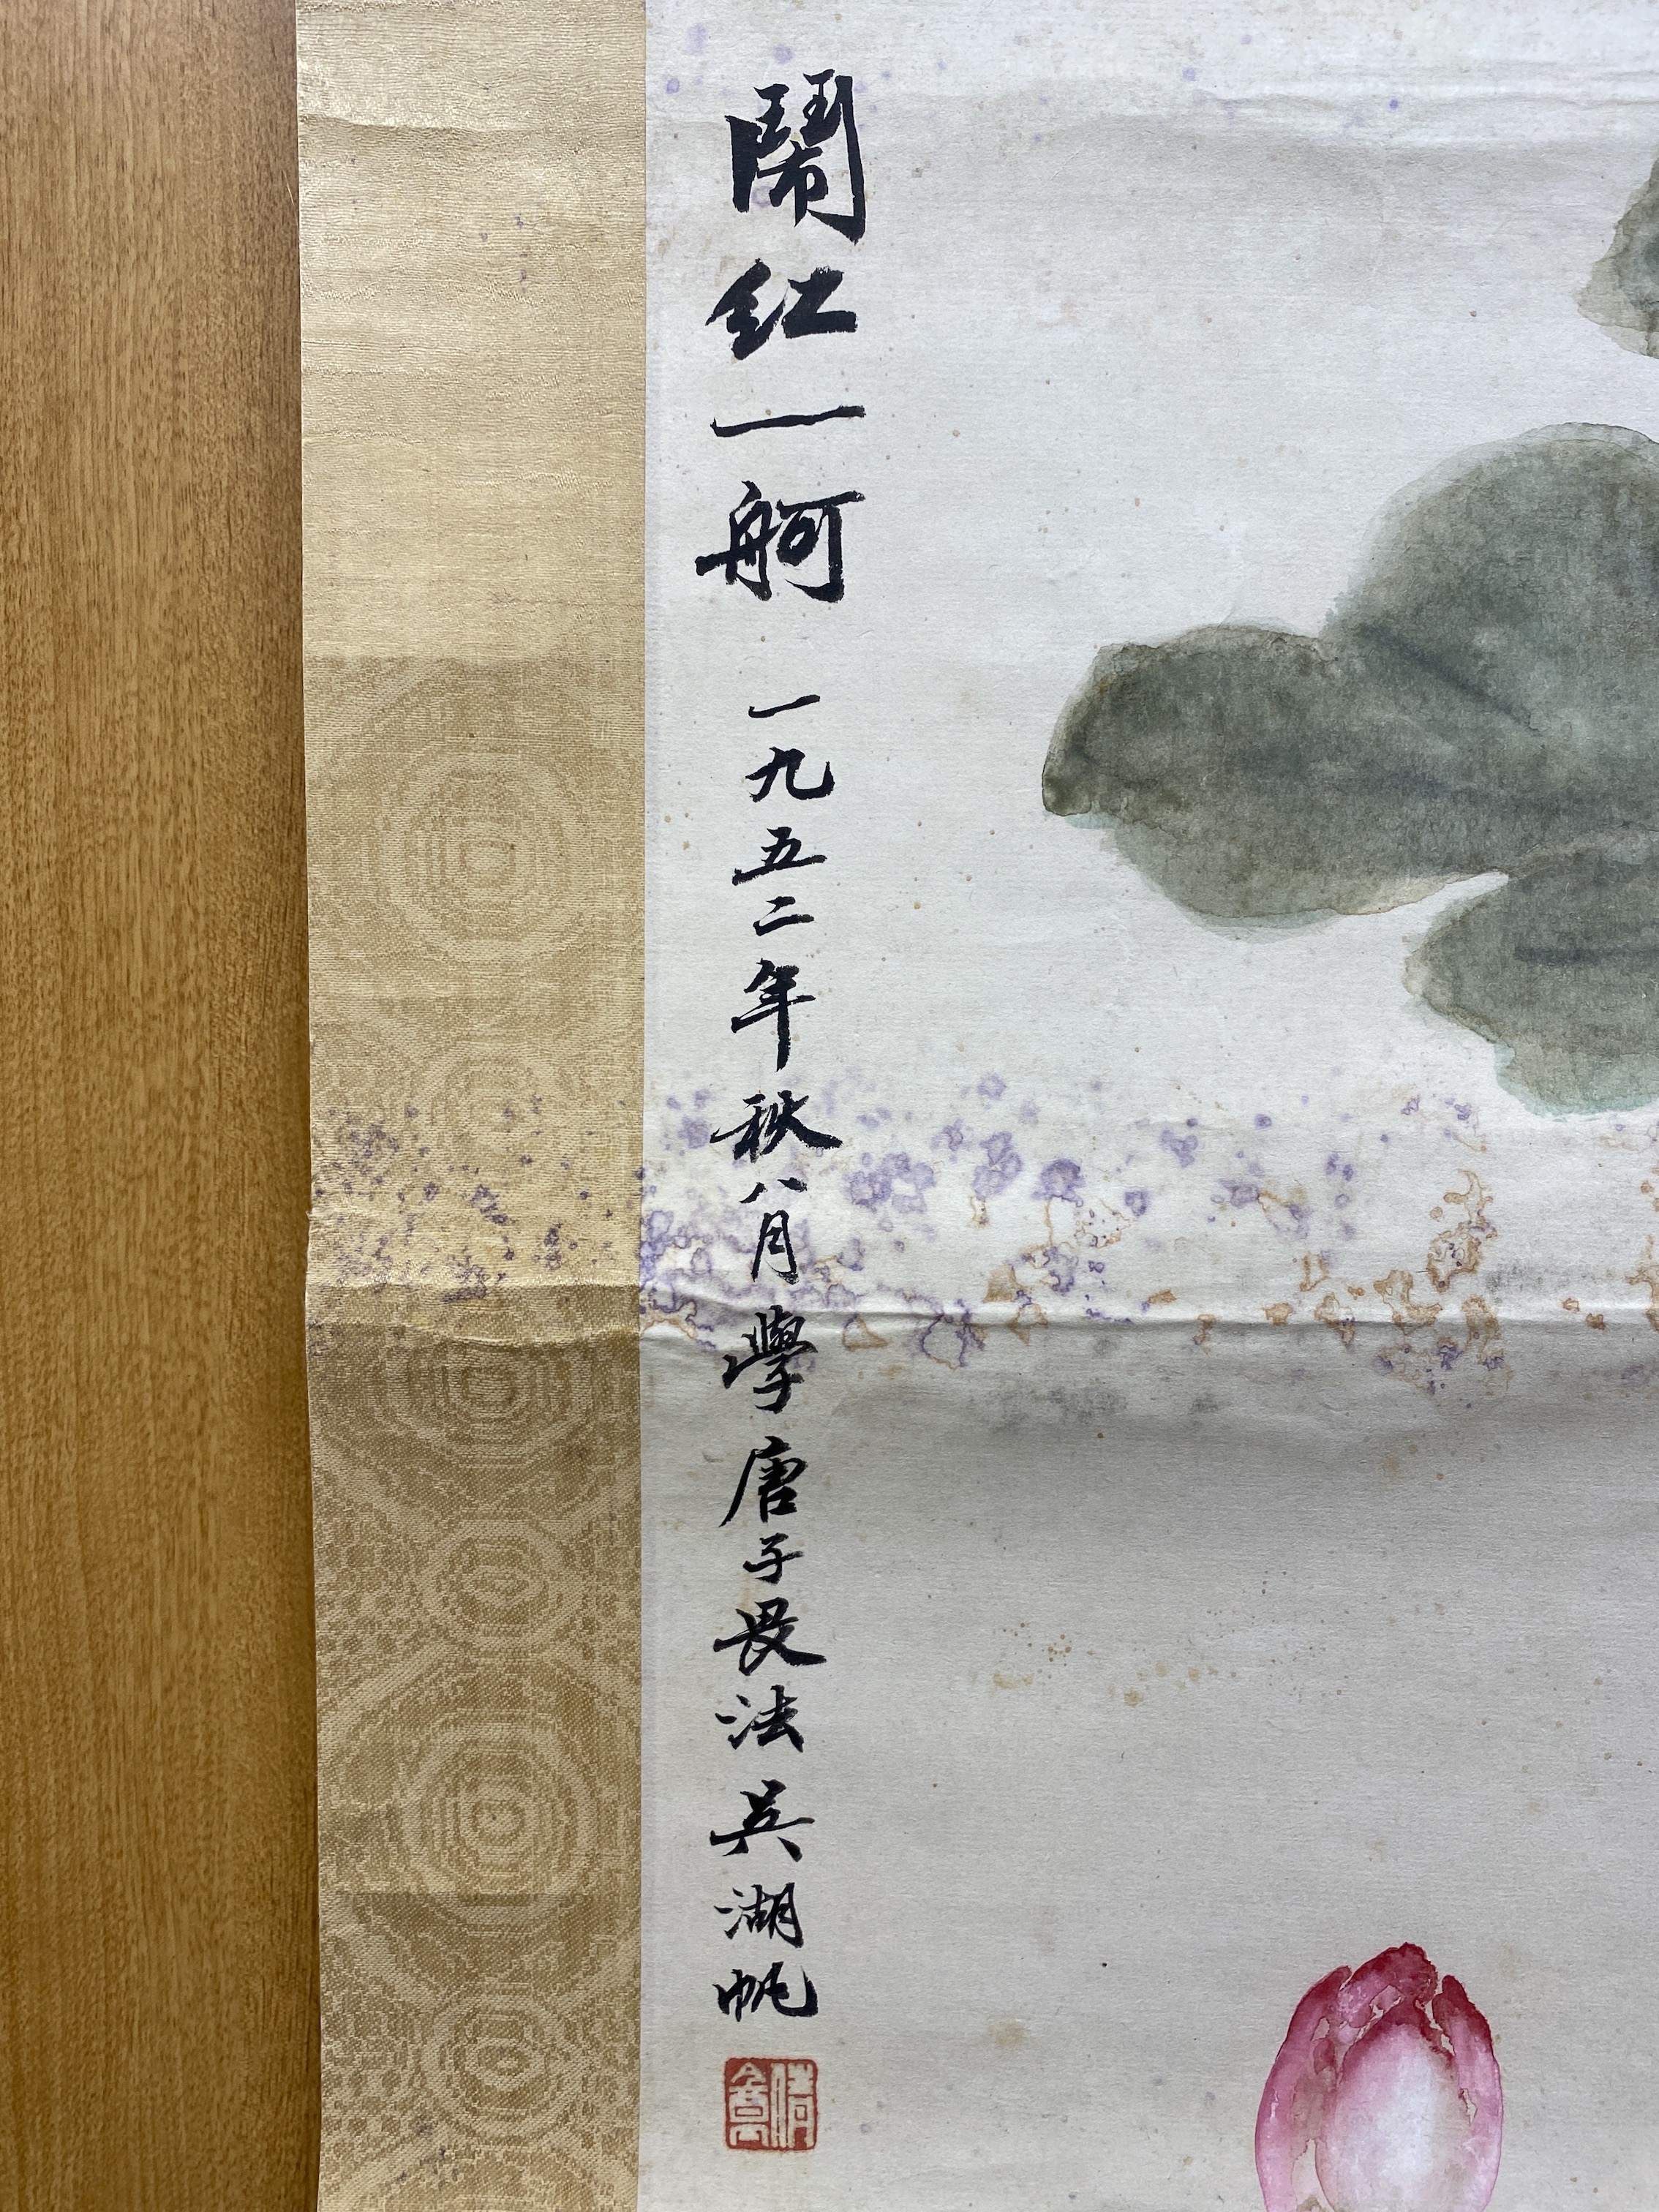 鬧紅一舸 一九五二年秋八月學唐子畏法吳湖帆
倩盦